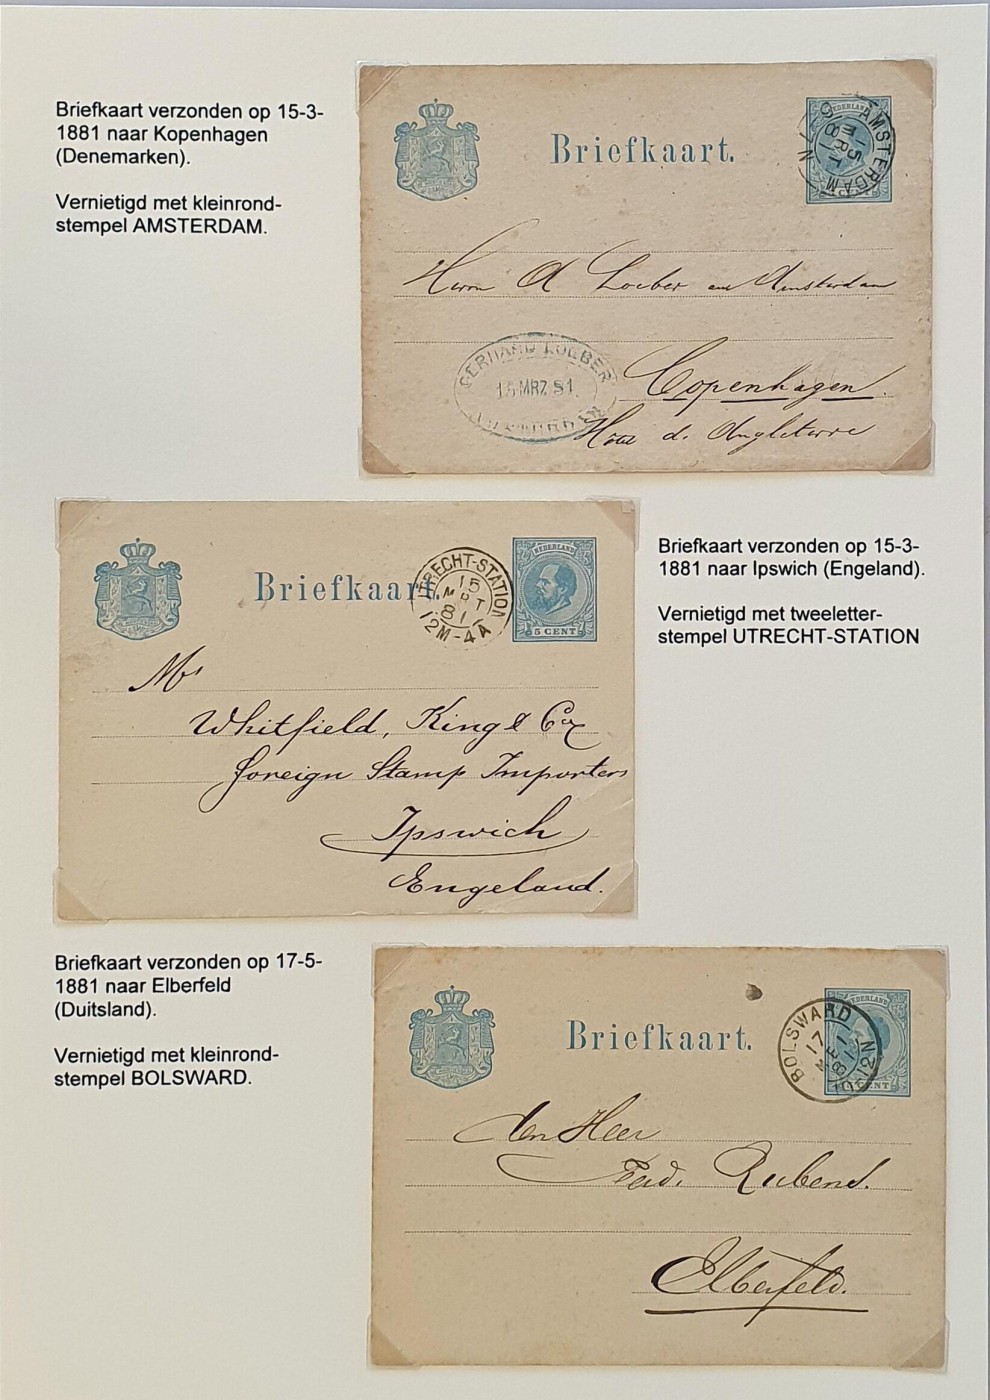 Briefkaart verzonden op 15-3-
1881 naar Kopenhagen
(Denemarken).
Vernietigd met kleinrond-
stempel AMSTERDAM.
Briefkaart.
NEDERLAND
AMSTERDAM
15
MRT
81
Herrn A Loeber aus Amsterdam
Copenhagen.
Hôtel d. Angleterre
GERHARD LOEBER
15 MRZ 81
AMSTERDAM
Briefkaart verzonden op 15-3-
1881 naar Ipswich (Engeland).
Vernietigd met tweeletter-
stempel UTRECHT-STATION
Briefkaart.
UTRECHT-STATION
15
MRT
81
12M-4A
NEDERLAND
5 CENT
Mrs
Whitfield, King & Co
Foreign Stamp Importers
Ipswich
Engeland.
Briefkaart verzonden op 17-5-
1881 naar Elberfeld
(Duitsland).
Vernietigd met kleinrond-
stempel BOLSWARD.
Briefkaart.
NEDERLAND
BOLSWARD
17
MEI
81
CENT
den Heer
Ferd. Rubens.
Elberfeld.